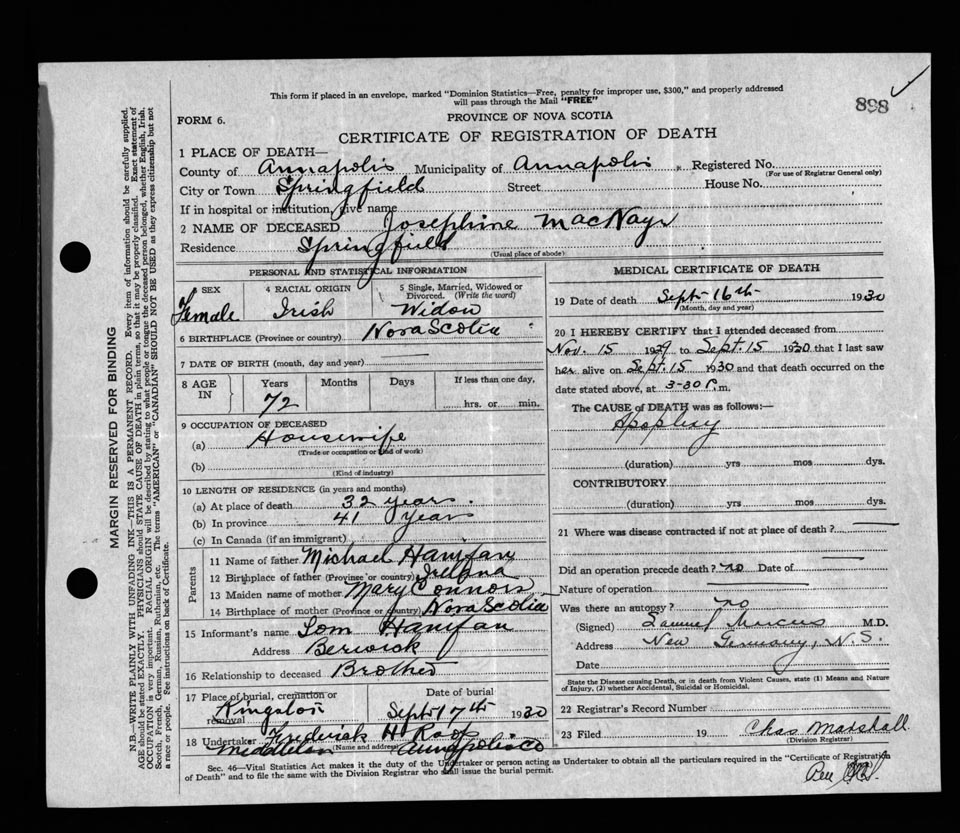 This form if placed in an envelope, marked "Dominion Statistics—Free, penalty for improper use, $300," and properly addressed
will pass through the Mail "FREE"
898
FORM 6.
PROVINCE OF NOVA SCOTIA
CERTIFICATE OF REGISTRATION OF DEATH
1 PLACE OF DEATH—
County of Annapolis Municipality of Annapolis Registered No.
(For use of Registrar General only)
City or Town Springfield Street House No.
If in hospital or institution, give name
2 NAME OF DECEASED Josephine MacNayr
Residence Springfield
(Usual place of abode)
PERSONAL AND STATISTICAL INFORMATION
3 SEX Female
4 RACIAL ORIGIN Irish
5 Single, Married, Widowed or Divorced. (Write the word) Widow
6 BIRTHPLACE (Province or country) Nova Scotia
7 DATE OF BIRTH (month, day and year)
8 AGE IN Years Months Days If less than one day,
72 hrs. or min.
9 OCCUPATION OF DECEASED
(a) Housewife
(Trade or occupation or kind of work)
(b)
(Kind of industry)
10 LENGTH OF RESIDENCE (in years and months)
(a) At place of death 32 years
(b) In province 41 years
(c) In Canada (if an immigrant)
Parents
11 Name of father Michael Hanifan
12 Birthplace of father (Province or country) Irelana
13 Maiden name of mother Mary Connors
14 Birthplace of mother (Province or country) Nova Scotia
15 Informant's name Tom Hanifan
Address Berwick
16 Relationship to deceased Brother
17 Place of burial, cremation or removal Kingston
Date of burial Sept 17th 1930
18 Undertaker Frederick H Roop
(Name and address)
Middleton Annapolis Co
MEDICAL CERTIFICATE OF DEATH
19 Date of death Sept 16th 1930
(Month, day and year)
20 I HEREBY CERTIFY that I attended deceased from
Nov. 15 1929 to Sept. 15 1930 that I last saw
her alive on Sept. 15 1930 and that death occurred on the
date stated above, at 3-30 P.m.
The CAUSE of DEATH was as follows:—
Apoplexy
(duration) yrs mos dys.
CONTRIBUTORY
(duration) yrs mos dys.
21 Where was disease contracted if not at place of death?
Did an operation precede death? no Date of
Nature of operation
Was there an autopsy? no
(Signed) Samuel Marcus M.D.
Address New Germany, N.S.
Date
State the Disease causing Death, or in death from Violent Causes, state (1) Means and Nature
of Injury, (2) whether Accidental, Suicidal or Homicidal.
22 Registrar's Record Number
23 Filed 19 Chas Marshall
(Division Registrar)
Sec. 46—Vital Statistics Act makes it the duty of the Undertaker or person acting as Undertaker to obtain all the particulars required in the "Certificate of Registration
of Death" and to file the same with the Division Registrar who shall issue the burial permit.
MARGIN RESERVED FOR BINDING
N.B.—WRITE PLAINLY WITH UNFADING INK—THIS IS A PERMANENT RECORD. Every item of information should be carefully supplied.
AGE should be stated EXACTLY. PHYSICIANS should STATE CAUSE OF DEATH in plain terms, so that it may be properly classified. Exact statement of
OCCUPATION is very important. RACIAL ORIGIN will be described by stating to what people or tongue the deceased person belonged, whether English, Irish,
Scotch, French, German, Russian, Ruthenian, etc. The terms "AMERICAN" or "CANADIAN" SHOULD NOT BE USED as they express citizenship but not
a race or people. See instructions on back of Certificate.